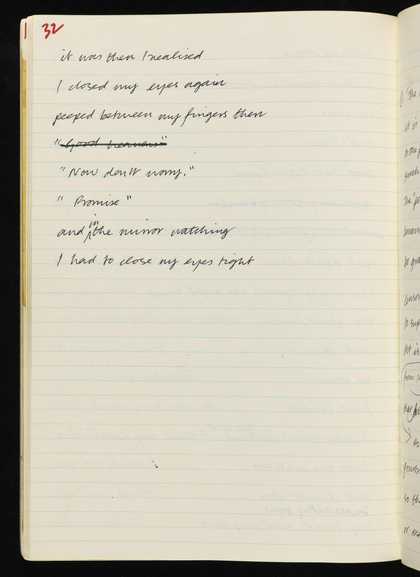 32
it was then I realised
I closed my eyes again
peeped between my fingers then
"Good heavens"
"Now don't worry."
"Promise"
and in the mirror watching
I had to close my eyes tight